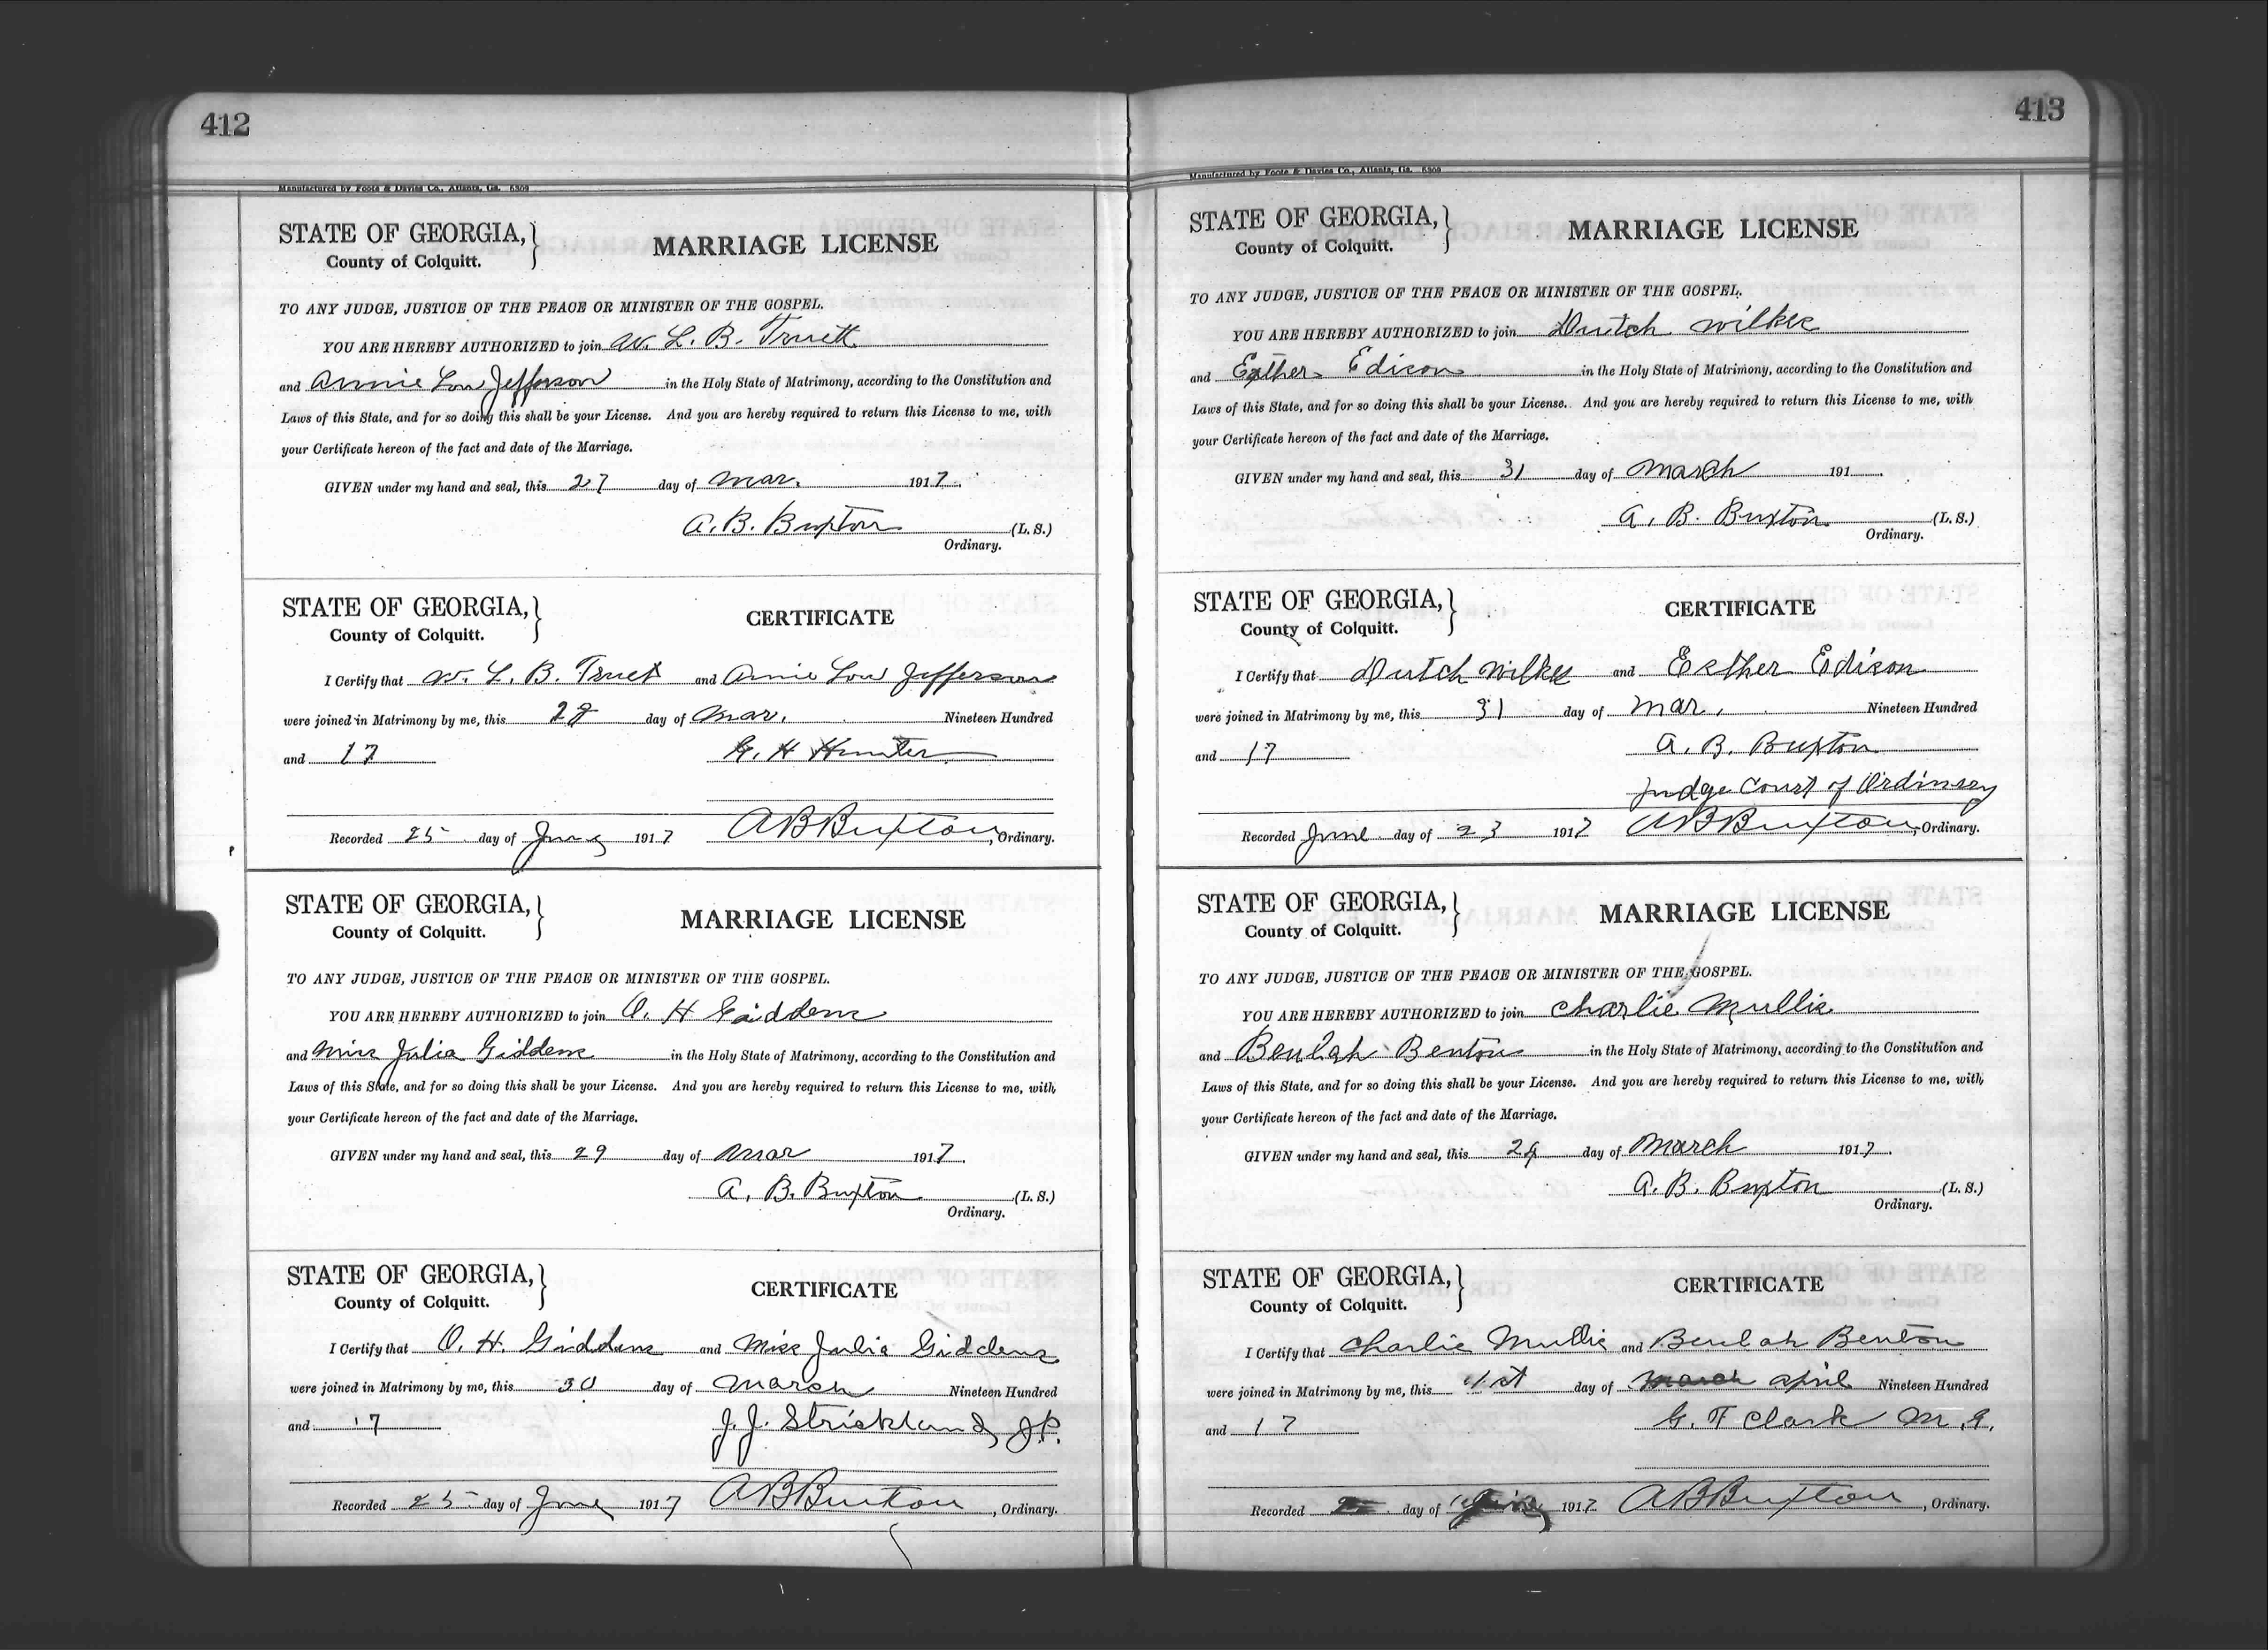 412
Manufactured by Foote & Davies Co., Atlanta, Ga. 6309
STATE OF GEORGIA,
County of Colquitt.
MARRIAGE LICENSE
TO ANY JUDGE, JUSTICE OF THE PEACE OR MINISTER OF THE GOSPEL.
YOU ARE HEREBY AUTHORIZED to join W. L. B. Truett
and Annie Lou Jefferson in the Holy State of Matrimony, according to the Constitution and
Laws of this State, and for so doing this shall be your License. And you are hereby required to return this License to me, with
your Certificate hereon of the fact and date of the Marriage.
GIVEN under my hand and seal, this 27 day of Mar. 1917.
A. B. Buxton (L. S.)
Ordinary.
STATE OF GEORGIA,
County of Colquitt.
CERTIFICATE
I Certify that W. L. B. Truet and Annie Lou Jefferson
were joined in Matrimony by me, this 28 day of Mar. Nineteen Hundred
and 17
G. H Hunter
Recorded 25 day of June 1917 A B Buxton, Ordinary.
STATE OF GEORGIA,
County of Colquitt.
MARRIAGE LICENSE
TO ANY JUDGE, JUSTICE OF THE PEACE OR MINISTER OF THE GOSPEL.
YOU ARE HEREBY AUTHORIZED to join O. H Giddens
and Miss Julia Giddens in the Holy State of Matrimony, according to the Constitution and
Laws of this State, and for so doing this shall be your License. And you are hereby required to return this License to me, with
your Certificate hereon of the fact and date of the Marriage.
GIVEN under my hand and seal, this 29 day of Mar 1917.
A. B. Buxton (L. S.)
Ordinary.
STATE OF GEORGIA,
County of Colquitt.
CERTIFICATE
I Certify that O. H. Giddens and Miss Julia Giddens
were joined in Matrimony by me, this 30 day of March Nineteen Hundred
and 17
J. J. Strickland J.P.
Recorded 25 day of June 1917 A B Buxton, Ordinary.
413
Manufactured by Foote & Davies Co., Atlanta, Ga. 6309
STATE OF GEORGIA,
County of Colquitt.
MARRIAGE LICENSE
TO ANY JUDGE, JUSTICE OF THE PEACE OR MINISTER OF THE GOSPEL.
YOU ARE HEREBY AUTHORIZED to join Dutch Wilkes
and Esther Edison in the Holy State of Matrimony, according to the Constitution and
Laws of this State, and for so doing this shall be your License. And you are hereby required to return this License to me, with
your Certificate hereon of the fact and date of the Marriage.
GIVEN under my hand and seal, this 31 day of March 191
A. B. Buxton (L. S.)
Ordinary.
STATE OF GEORGIA,
County of Colquitt.
CERTIFICATE
I Certify that Dutch Wilkes and Esther Edison
were joined in Matrimony by me, this 31 day of Mar. Nineteen Hundred
and 17
A. B. Buxton
Judge Court of Ordinary
Recorded June day of 23 1917 A B Buxton, Ordinary.
STATE OF GEORGIA,
County of Colquitt.
MARRIAGE LICENSE
TO ANY JUDGE, JUSTICE OF THE PEACE OR MINISTER OF THE GOSPEL.
YOU ARE HEREBY AUTHORIZED to join Charlie Mullis
and Beulah Benton in the Holy State of Matrimony, according to the Constitution and
Laws of this State, and for so doing this shall be your License. And you are hereby required to return this License to me, with
your Certificate hereon of the fact and date of the Marriage.
GIVEN under my hand and seal, this 24 day of March 1917.
A. B. Buxton (L. S.)
Ordinary.
STATE OF GEORGIA,
County of Colquitt.
CERTIFICATE
I Certify that Charlie Mullis and Beulah Benton
were joined in Matrimony by me, this 1st day of March April Nineteen Hundred
and 17
G. F Clark M. G.
Recorded day of June 1917 A B Buxton, Ordinary.